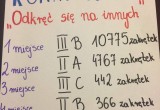 "Odkręć się na innych"
1 miejsce III B 10775 zakrętek
2 miejsce II A 4767 zakrętek
3 miejsce III C 442 zakrętek
II B 366 zakrętek